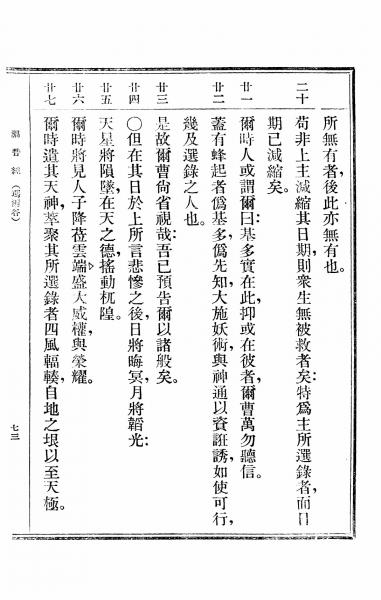 所無有者，後此亦無有也。
二十 苟非上主減縮其日期，則衆生無被救者矣：特爲主所選錄者，而日
期已減縮矣。
廿一 爾時人或謂爾曰：基多實在此，抑或在彼者，爾曹萬勿聽信。
廿二 蓋有蜂起者，爲基多，爲先知，大施妖術，與神通以資誑誘，如使可行，
幾及選錄之人也。
廿三 是故爾曹尙省視哉：吾已預告爾以諸般矣。
廿四 〇但在其日，於上所言悲慘之後，日將晦冥，月將韜光：
廿五 天星將隕墜，在天之德，搖動杌隉。
廿六 爾時將見人子降莅雲端，盛大威權，與榮耀。
廿七 爾時遣其天神，萃聚其所選錄者，四風輻輳，自地之垠，以至天極。
福音經（瑪爾谷）
七三